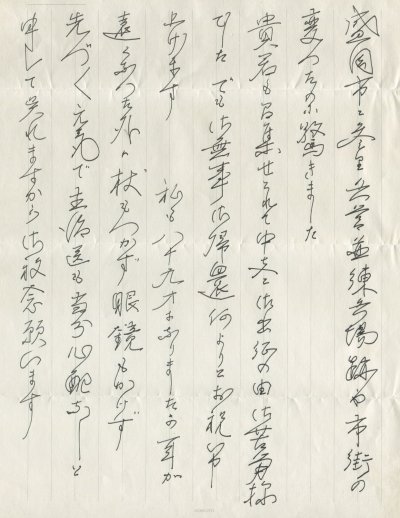 盛岡市に入り兵営並練兵場跡が市街の
変つたのに驚きました
貴君も召集せられて中支に御出征の由御苦労様
でした でも御無事御帰還何よりとお祝い申
上げます
私も八十九才になりましたが耳が
遠くなつた外は杖もつかず眼鏡もかけず
先づ〱元気で主治医も当分心配なしと
申して呉れますから御放念願います